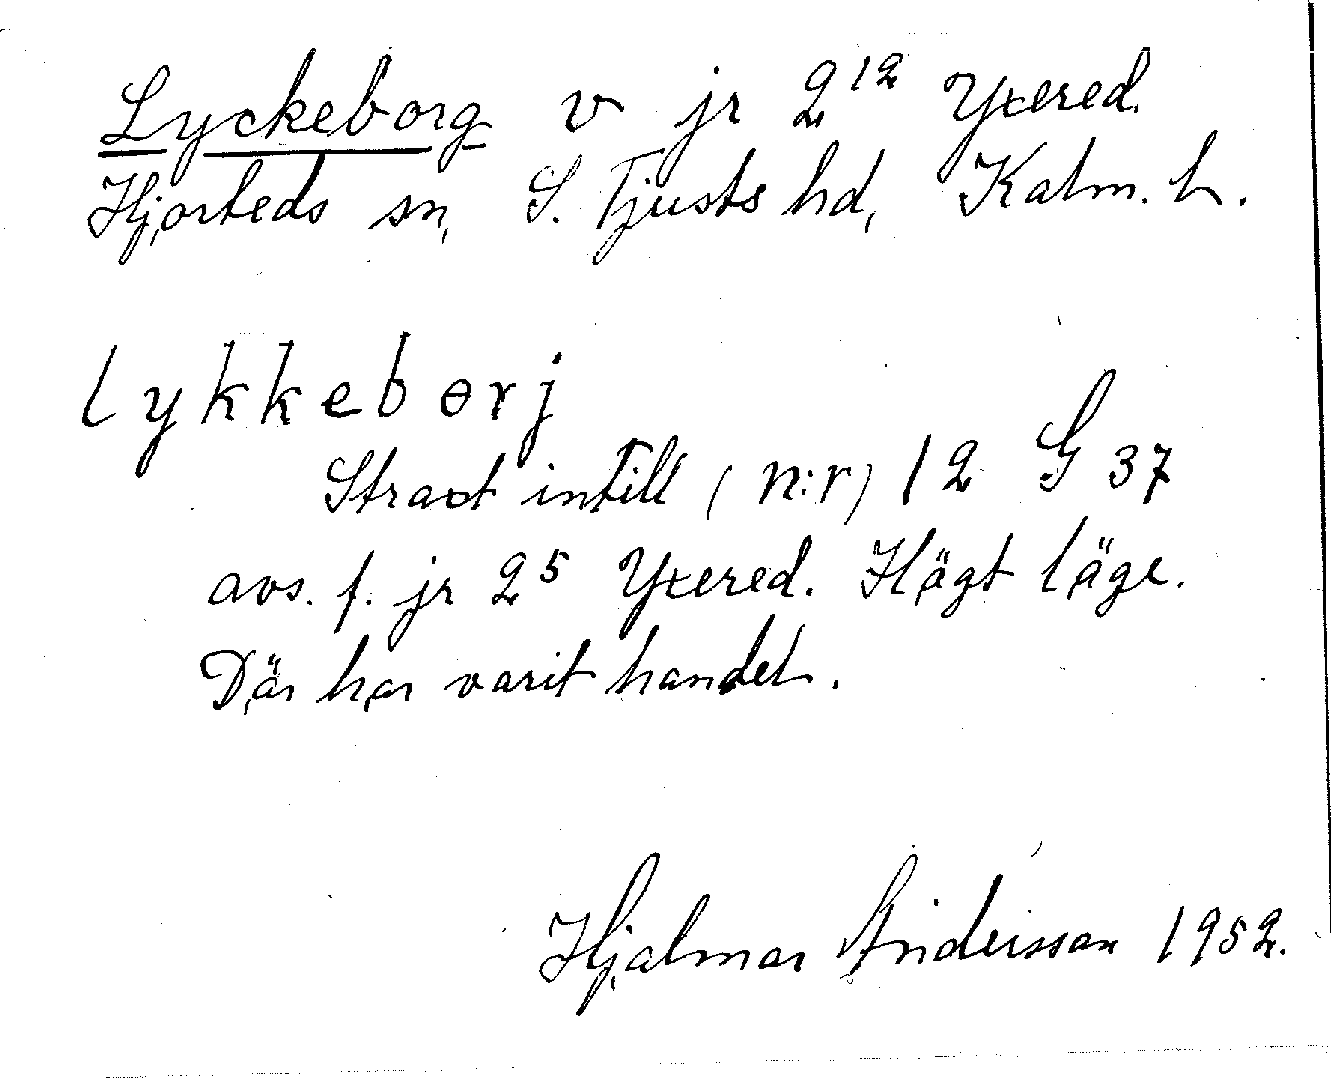 Lyckeborg v jr 2¹² Yxered.
Hjorteds sn, S. Tjusts hd, Kalm. l.
lykkebɵrj
Straxt intill (n:r) 12 G 37
avs. f. jr 2⁵ Yxered. Högt läge.
Där har varit handel.
Hjalmar Andersson 1952.